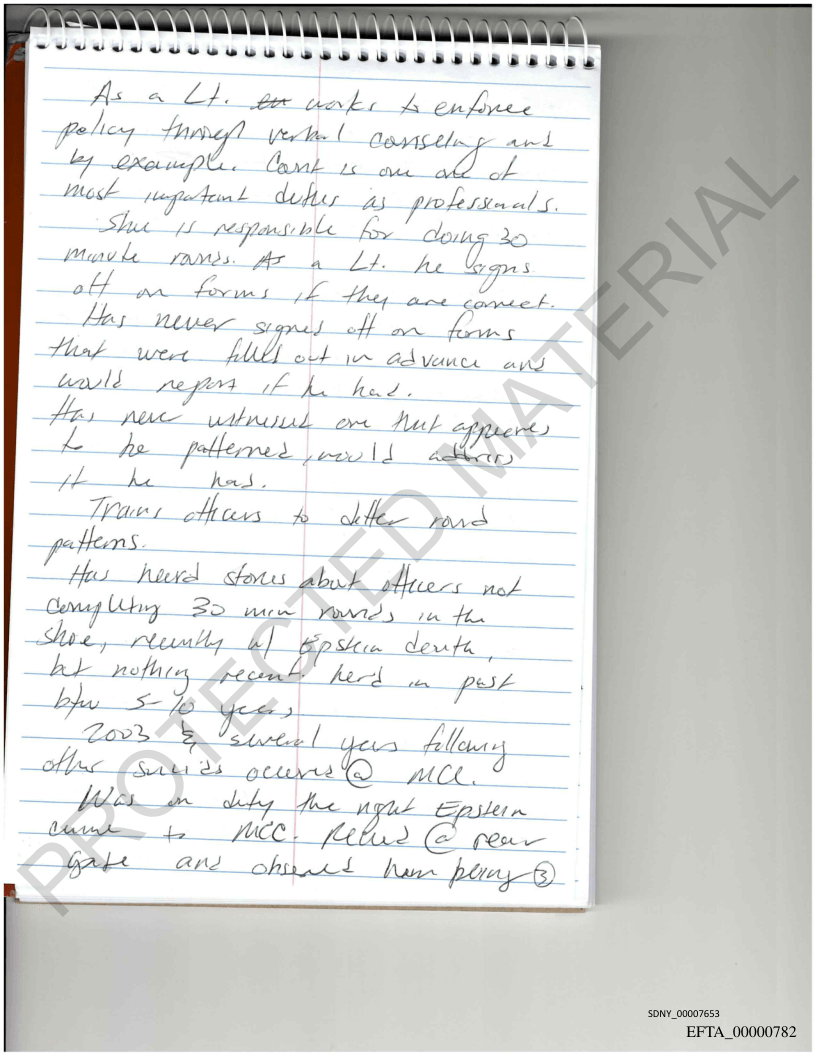 As a Lt. works to enforce
policy through verbal counseling and
by example. Count is one one of
most important duties as professionals.
Shu is responsible for doing 30
minute rounds. As a Lt. he signs
off on forms if they are correct.
Has never signed off on forms
that were filled out in advance and
would report if he had.
Has never witnessed one that appeares
to be patterned, would address
it he has.
Trains officers to differ round
patterns.
Has heard stories about officers not
completing 30 min rounds in the
shoe, recently w/ Epstein death,
but nothing recent. herd in past
btw 5-10 years
2003 & several years following
other suicids occured @ MCC.
Was on duty the night Epstein
came to MCC. @ rear
gate and observed him being ③
PROTECTED MATERIAL
SDNY_00007653
EFTA_00000782